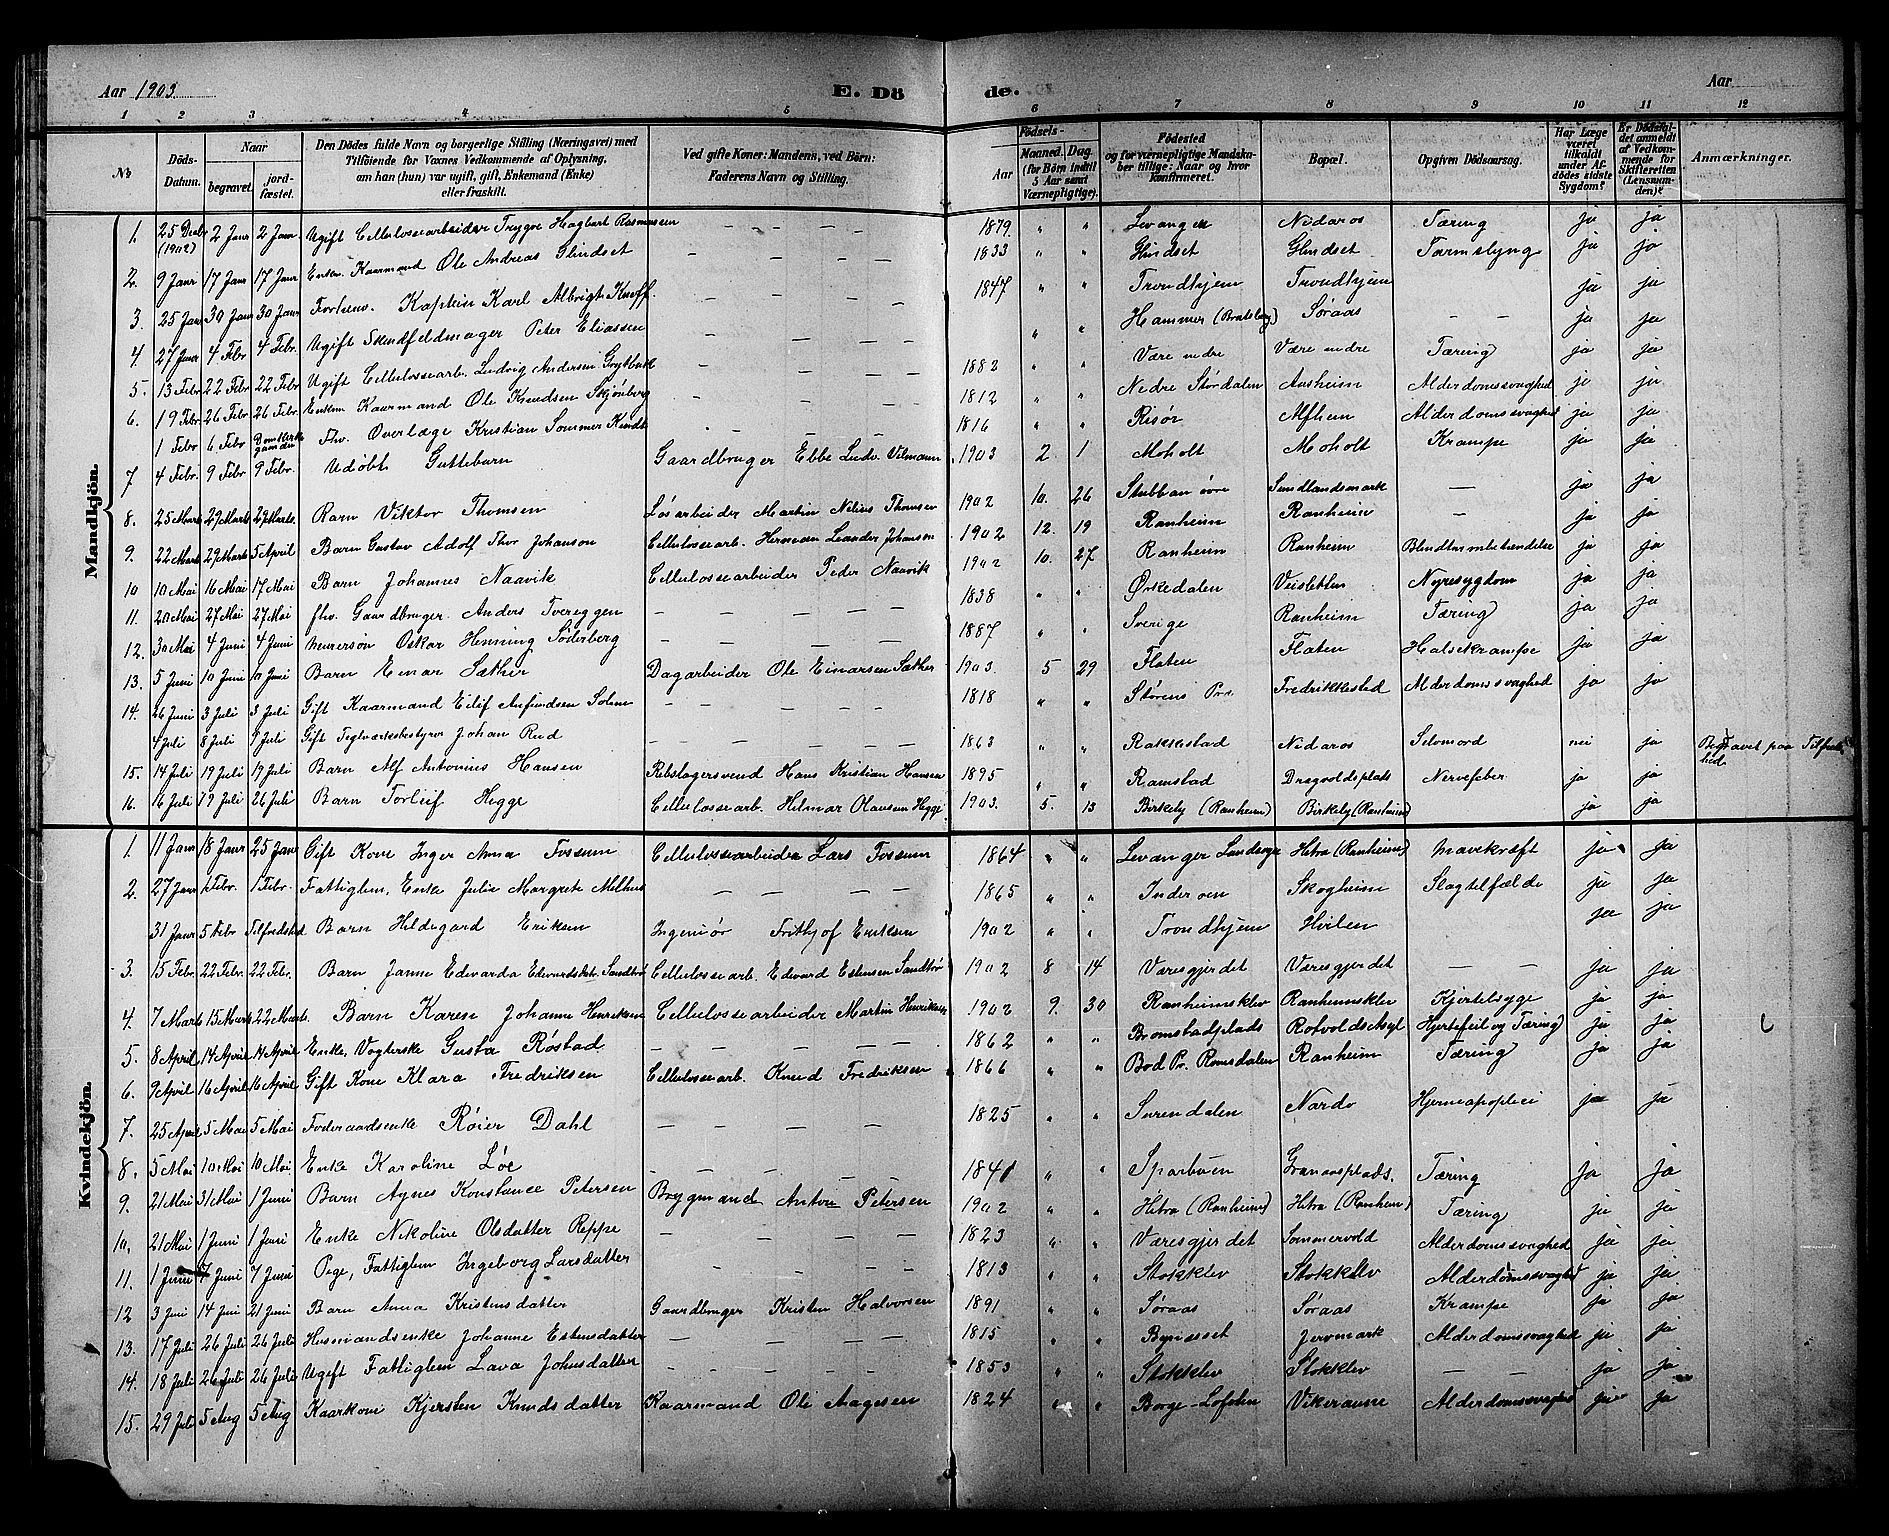 Aar 1903. E. Dö de. Aar
1 2 3 4 5 6 7 8 9 10 11 12
№ Döds-Datum. Naar begravet. jordfæstet. Den Dödes fulde Navn og borgerlige Stilling (Næringsvei) med Tilföiende for Voxnes Vedkommende af Oplysning, om han (hun) var ugift, gift, Enkemand (Enke) eller fraskilt. Ved gifte Koner: Mandens, ved Börn: Faderens Navn og Stilling. Födsels- Aar Maaned. Dag. (for Börn indtil 5 Aar samt Værnepligtige). Födested og for værnepligtige Mandskaber tillige: Naar og hvor konfirmeret. Bopæl. Opgiven Dödsaarsag. Har Læge været tilkaldt under Afdödes sidste Sygdom? Er Dödsfaldet anmeldt af Vedkommende for Skifteretten (Lensmanden)? Anmærkninger.
Mandkjön.
1. 25 Decbr (1902) 2 Janr 2 Janr Ugift Cellulossearbeider Trygve Hagbart Rasmussen — — — — 1879. " " Levanger Nidaros Tæring ja ja
2. 9 Janr 17 Janr 17 Janr Enkem. Kaarmand Ole Andreas Glindset — — — — 1833 " " Glindset Glindset Tarmslyng ja ja
3. 25 Janr 30 Janr 30 Janr Forhenv. Kaptein Karl Albrigt Knoff. — — — — 1847 " " Trondhjem Trondhjem ja ja
4. 27 Janr 4 Febr 4 Febr. Ugift Skindfeldmager Peter Eliassen — — — — " " Hammer (Bratsberg) Søraas — — ja ja
5. 13 Febr 22 Febr 22 Febr Ugift Cellulossearb. Ludvig Andersen Grytbak — — — — 1882 " " Være nedre Være nedre Tæring ja ja
6. 19 Febr 26 Febr 26 Febr. Enkem Kaarmand Ole Knudsen Skjønberg — — — — 1812 " " Nedre Stördalen Aasheim Alderdomssvaghed ja ja
1 Febr 6 Febr Fhv. Overlæge Kristian Sommer Kindt — — — 1816 " " Risör Alfheim Alderdomssvaghed ja ja
7 4 Febr. 9 Febr. 9 Febr. Udöbt Guttebarn Gaardbruger Ebbe Ludv. Vilmann 1903 2 1 Moholt Moholt Krampe ja ja
8. 25 Marts 29 Marts 29 Marts. Barn Viktor Thomsen Løsarbeider Martin Nelius Thomsen 1902 10. 26 Stubban övre Sundlandsmark — ja ja
9. 22 Marts 29 Marts 5 April Barn Gustav Adolf Thor Johanson Cellulossearb. Herman Leander Johanson 1902 12. 19 Ranheim Ranheim — ja ja
10 10 Mai 16 Mai 17 Mai Barn Johannes Naavik Cellulossearbeider Peder Naavik 1902 10. 27 Ranheim Ranheim Blindtarmbetændelse ja ja
11. 20 Mai 27 Mai 27 Mai fhv. Gaardbruger. Anders Tvereggen — — — — 1838 " " Ørkedalen Veisletten Nyresygdom ja ja
12. 30 Mai 4 Juni 4 Juni Murersøn Oskar Henning Söderberg — — — — 1887 " " Sverige Ranheim Tæring ja ja
13. 5 Juni 10 Juni 10 Juni Barn Einar Sæther Dagarbeider Ole Einarsen Sæther 1903. 5 29 Flaten Flaten Halsekrampe ja ja
14. 26 Juni 3 Juli 3 Juli Gift Kaarmand Eilif Anfindsen Solem — — — — 1818 " " Störens Pr. Fredrikkestad Alderdomssvaghed ja ja
4 Juli 8 Juli 9 Juli Gift Teglværksbestyrer Johan Rud — — — — 1863 " " Rakkestad Nidaros Selvmord nei ja Begravet paa Tilfredshed
15. 14 Juli 19 Juli 19 Juli Barn Alf Antonius Hansen Rebslagersvend Hans Kristian Hansen 1895 " " Ramstad Dragvoldsplads Nervefeber ja ja
16. 16 Juli 19 Juli 26 Juli Barn Torleif Hegge Cellulossearb. Helmar Olausen Hegge 1903. 5. 13 Birkely (Ranheim) Birkely (Ranheim) ja ja
Kvindekjön.
1. 11 Janr 18 Janr 25 Janr Gift Kone Inger Anna Fossum Cellulossearbeider Lars Fossum 1864 " " Levanger Landsogn Hitra (Ranheim) Mavekræft ja ja
2. 27 Janr 1 Febr. 1 Febr. Fattiglem, Enke Julie Margrete Melhus — — — — 1865 " " Inderøen Skogheim Slagtilfælde ja ja
31 Janr 5 Febr Tilfredshed Barn Hildegard Eriksen Ingeniör Frithjof Eriksen 1902 " " Trondhjem Hvilen ja ja
3. 15 Febr. 22 Febr. 22 Febr. Barn Janne Edvarda Edvardsdatr Sandbrö Cellulossearb. Edvard Estensen Sandbrö 1902 8 14 Væresgjerdet Væresgjerdet — — ja ja
4. 7 Marts 15 Marts 22 Marts. Barn Karen Johanne Henriksen Cellulossearbeider Martin Henriksen 1902 9. 30 Ranheimsklev Ranheimsklev Kjertelsyge ja ja
5. 8 April 14 April 14 April Enke, Vogterske Gusta Røstad — — — — 1862 " " Bromstadplads Rotvoldsasyl Hjertefeil og Tæring ja ja
6. 9 April 16 April 16 April Gift Kone Klara Fredriksen Cellulossearb. Knud Fredriksen 1866 " " Bod Pr. Romsdalen Ranheim Tæring ja ja
7. 25 April 5 Mai 5 Mai Föderaadsenke Røier Dahl — — — — 1825 " " Surendalen Nardo Hjerneapoplexi ja ja
8. 5 Mai 10 Mai 10 Mai Enke Karoline Löe — — — — 1841 " " Sparbuen Granaasplads. Tæring ja ja
9. 21 Mai 31 Mai 1 Juni Barn Agnes Konstance Petersen Brygmand Anton Petersen 1902 " " Hitra (Ranheim) Hitra (Ranheim) Tæring ja ja
10. 21 Mai 1 Juni 1 Juni Enke Nikoline Olsdatter Reppe — — — — 1823 " " Væresgjerdet Sommervold Alderdomssvaghed ja ja
11. 1 Juni 7 Juni 7 Juni Pige, Fattiglem Ingeborg Larsdatter — — — — 1813 " " Stokklev Stokklev Alderdomssvaghed ja ja
12 3 Juni 14 Juni 21 Juni Barn Anna Kristensdatter Gaardbruger Kristen Halvorsen 1891 " " Søraas Søraas Krampe ja ja
13. 17 Juli 26 Juli 26 Juli Husmandsenke Johanne Estensdatter — — — — 1815 " " Bynesset Jervmark Alderdomssvaghed ja ja
14. 18 Juli 26 Juli 26 Juli Ugift Fattiglem Lava Johnsdatter — — — — 1853 " " Stokklev Stokklev — — ja ja
15. 29 Juli 5 Aug 5 Aug Kaarkone Kjersten Knudsdatter Kaarmand Ole Aagesen 1824 " " Borge-Lofoten Vikeraune Alderdomssvaghed ja ja